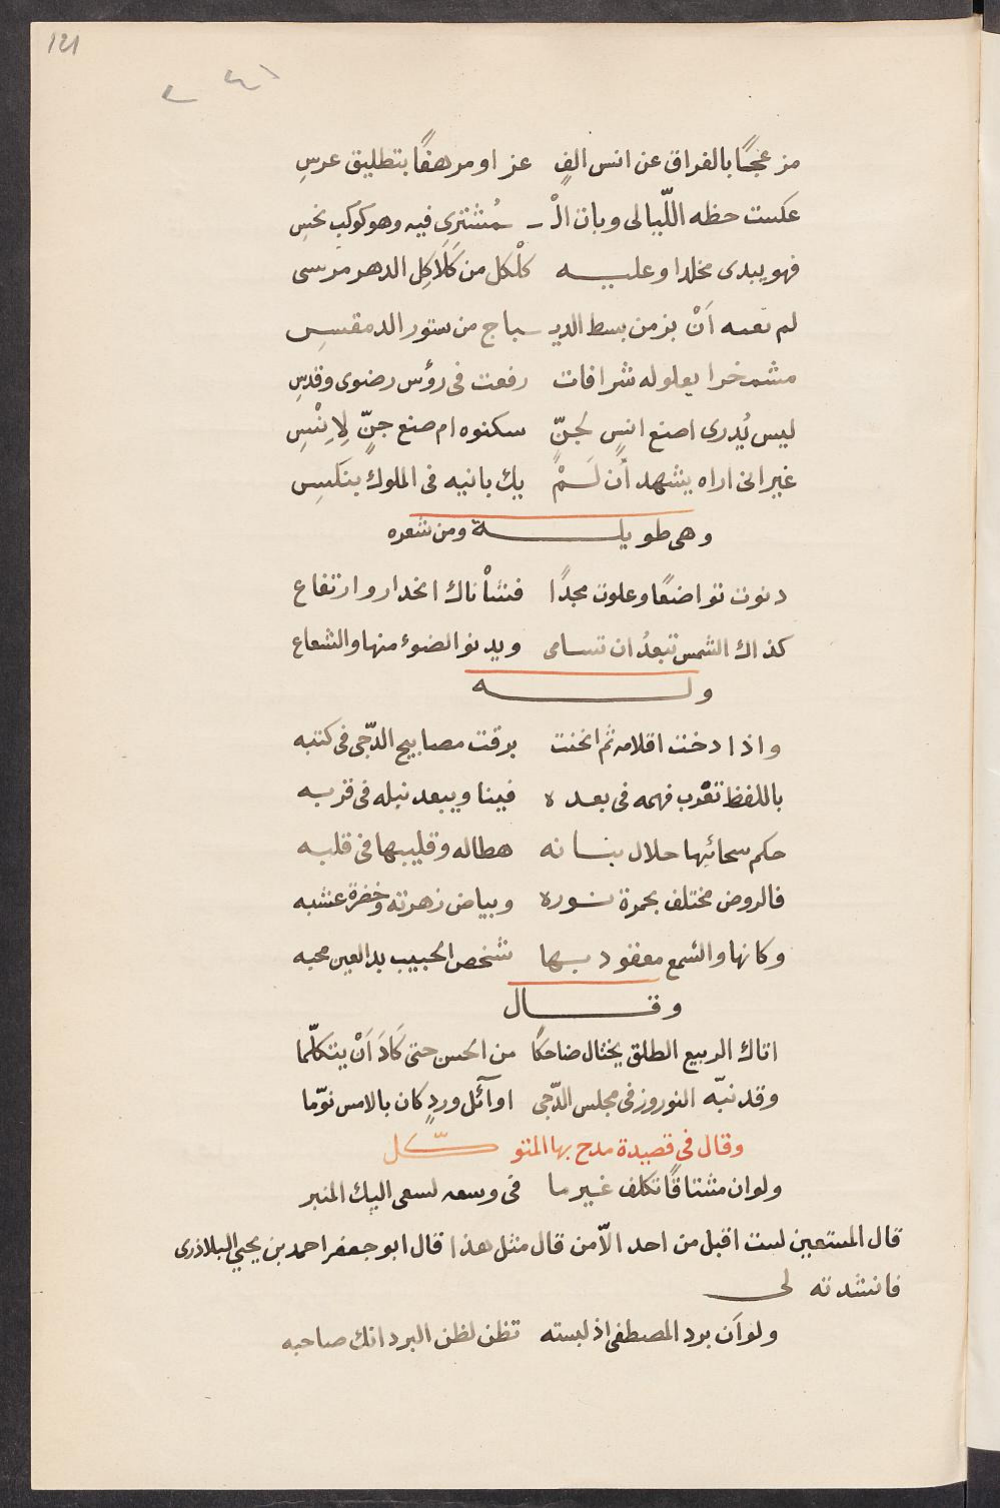 121
مزعجًا بالفراق عن انس الفٍ عز او مرهفًا بتطليق عرسِ
عكست حظه اللّيالى وبات الْـ ـمُشترى فيه وهو كوكب نحسِ
فهو يبدى مخلدا وعليه كلْكل من كَلَاكِل الدهر مرسى
لم تعبه اَنْ بز من بسط الديـ ـباج من ستور الدمقسِ
مشمخرا يعلو له شرافات رفعت فى رؤس رضوى وقدسِ
ليس يُدرى اصنع انسٍ لجنٍّ سكنوه ام صنع جنٍّ لِاِنْسِ
غير انى اراه يشهد أن لَمْ يك بانيه فى الملوك بنكسِ
وهى طويلة ومن شعره
دنوت تواضعًا وعلوت مجدًا فشأناك انحدار وارتفاع
كذاك الشمس تبعدُ ان تسامى ويدنو الضوء منها والشعاع
وله
واذا دخت اقلامه ثم انحنت برقت مصابيح الدّجى فى كتبه
باللفظ تقرب فهمه فى بعده فينا ويبعد نيله فى قربه
حكم سحائبها حلال بنانه هطاله وقليبها فى قلبه
فالروض مختلف بحمرة نوره وبياض زهرته وخضرة عشبه
وكانها والسمع معقود بها شخص الحبيب بدا لعين محبه
وقال
اتاك الربيع الطلق يختال ضاحكًا من الحسن حتى كَادَ اَنْ يتكلّما
وقد نبّه النوروز فى مجلس الدّجى اوآئل وردٍ كان بالامس نوّما
وقال فى قصيدة مدح بها المتوكّل
ولو ان مشتاقًا تكلف غير ما فى وسعه لسعى اليك المنبر
قال المستعين لست اقبل من احد الّا من قال مثل هذا قال ابو جعفر احمد بن يحيي البلاذرى
فانشدته لى
ولو اَن برد المصطفى اذ لبسته تظن لظن البرد انك صاحبه